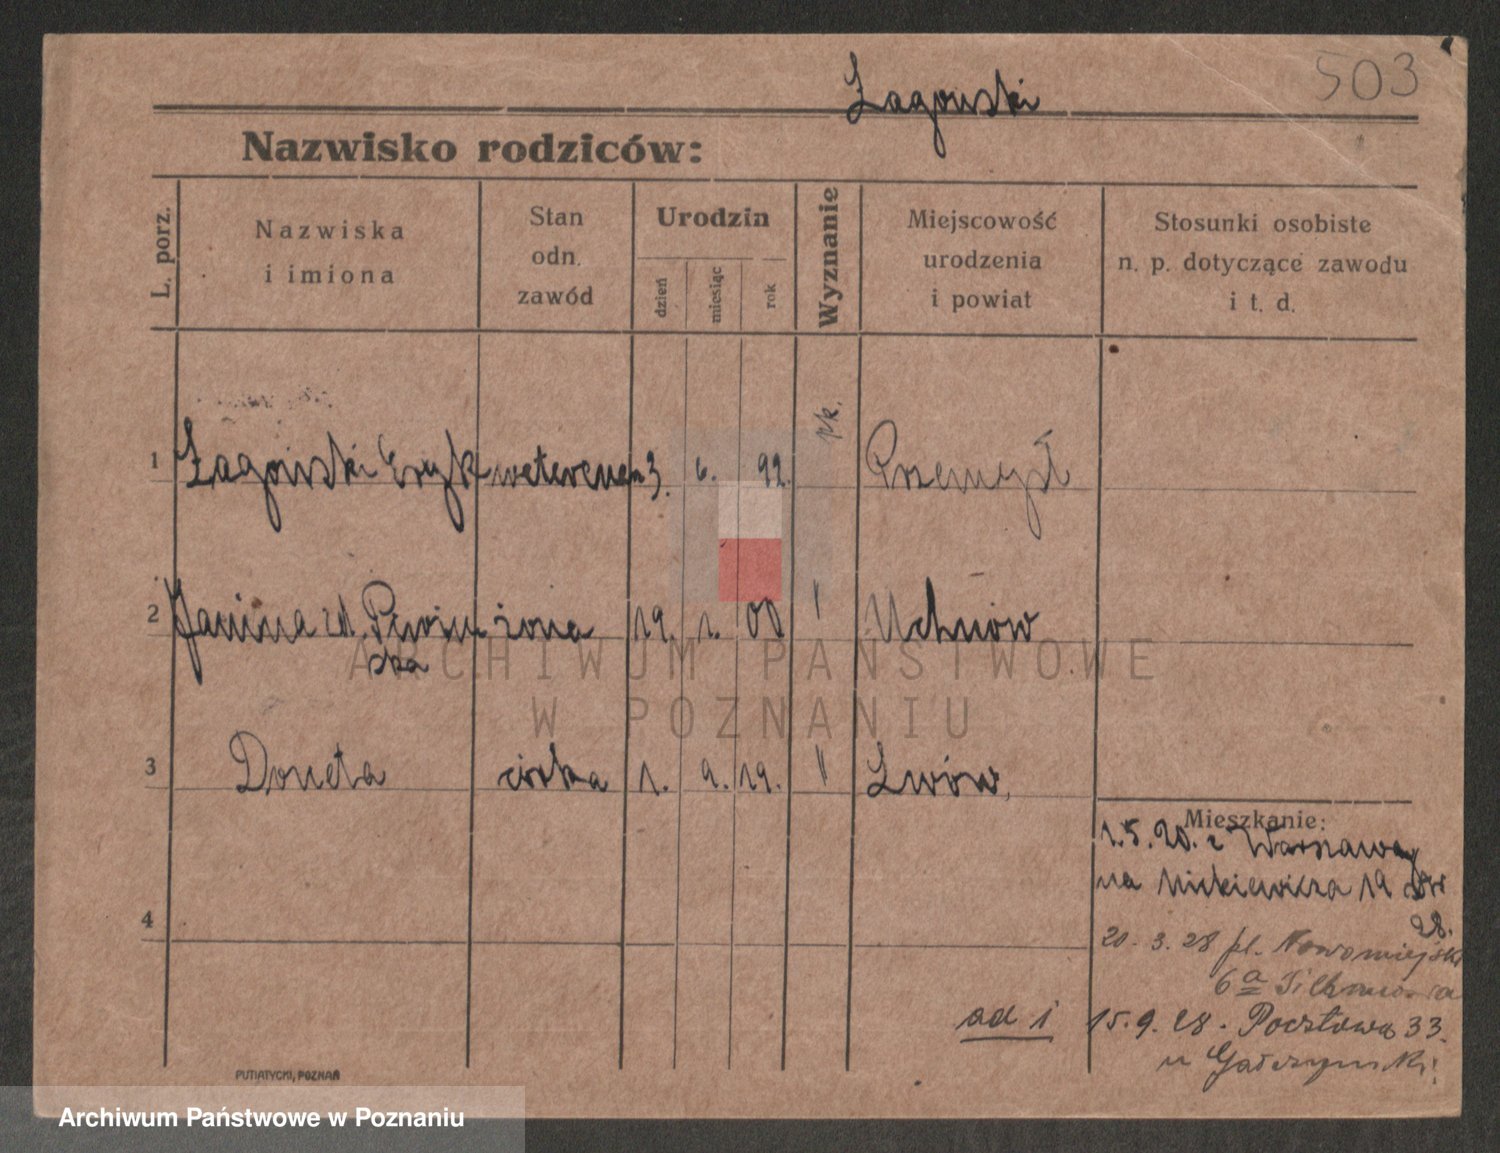 503
Łagowski
Nazwisko rodziców:
L. porz.
Nazwiska
i imiona
Stan
odn.
zawód
Urodzin
dzień
miesiąc
rok
Wyznanie
Miejscowość
urodzenia
i powiat
Stosunki osobiste
n. p. dotyczące zawodu
i t. d.
1 Łagowski Eryk 3. 6. 92. rk. Przemyśl
2 Janina żona 19. 1. 00 " Uchnów
ska
3 Doneta córka 1. 9. 19. " Lwów,
4
Mieszkanie:
1.5.20. z Warszawy
na Mickiewicza 19
28.
20. 3. 28 pl. Nowomiejski
6a
ad 1 15.9.28. Pocztowa 33.
u Gałczyński
PUTIATYCKI, POZNAŃ
ARCHIWUM PAŃSTWOWE
W POZNANIU
Archiwum Państwowe w Poznaniu